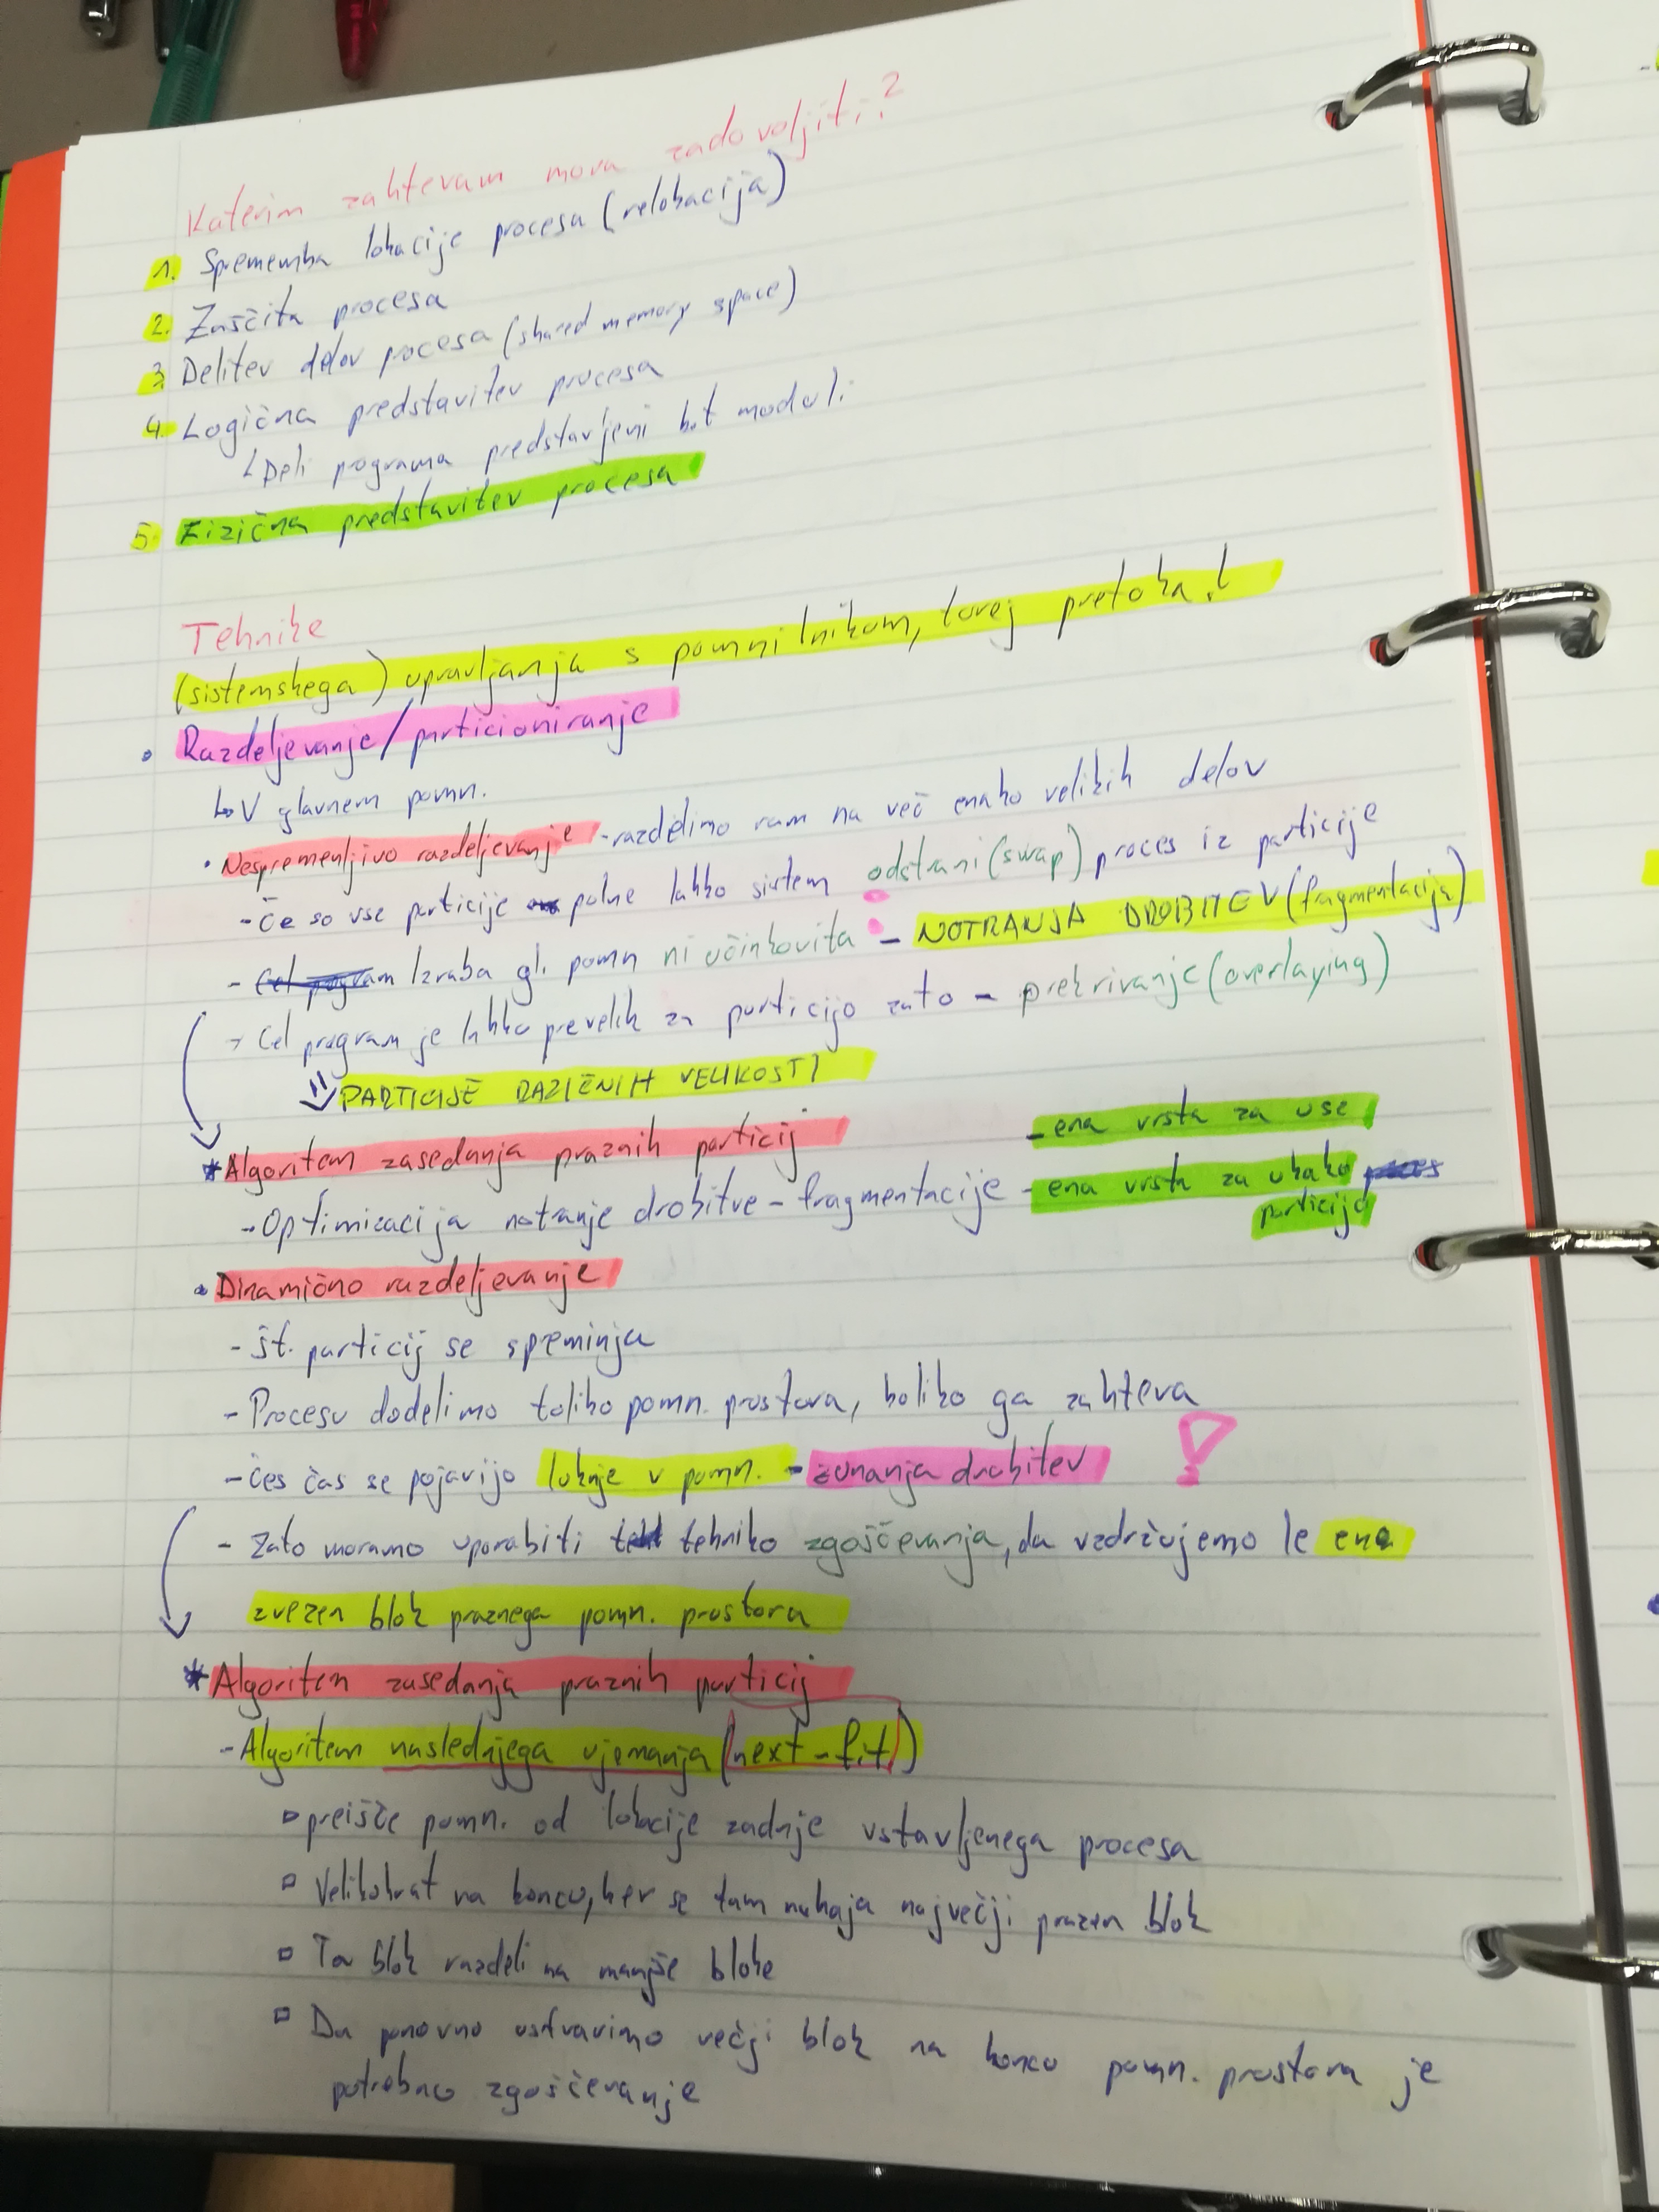 Katerim zahtevam mora zadovoljiti?
1. Sprememba lokacije procesa (relokacija)
2. Zaščita procesa
3. Delitev delov pocesa (shared memory space)
4. Logična predstavitev procesa
Deli programa predstavljeni kot moduli
5. Fizična predstavitev procesa
Tehnike
(sistemskega) upravljanja s pomnilnikom, torej pretoka!
• Razdeljevanje/particioniranje
↳ V glavnem pomn.
• Nespremenljivo razdeljevanje - razdelimo ram na več enako velikih delov
- če so vse particije polne lahko sistem odstrani (swap) proces iz particije
- Izraba gl. pomn ni učinkovita - NOTRANJA DROBITEV (fragmentacija)
- Cel program je lahko prevelik za particijo zato - prekrivanje (overlaying)
PARTICIJE RAZIČNIH VELIKOSTI
* Algoritem zasedanja praznih particij - ena vrsta za vse
- Optimizacija notranje drobitve - fragmentacije - ena vrsta za vkako
particijo
• Dinamično razdeljevanje
- št. particij se spreminja
- Procesu dodelimo toliko pomn. prostora, koliko ga zahteva
- čes čas se pojavijo luknje v pomn. - zunanja drobitev !
- Zato moramo uporabiti tehniko zgoščevanja, da vzdržujemo le ena
zvezen blok praznega pomn. prostora
* Algoritem zasedanja praznih particij
- Algoritem naslednjega ujemanja (next-fit)
▫ preišče pomn. od lokacije zadnje vstavljenega procesa
▫ Velikokrat na koncu, ker se tam nahaja največji prazen blok
▫ Ta blok razdeli na manjše bloke
▫ Da ponovno ustvarimo večji blok na koncu pomn. prostora je
potrebno zgoščevanje